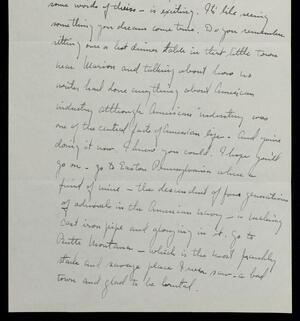 some words of theirs – is exciting. It's like seeing
something you dreamed come true. Do you remember
sitting over a last dinner table in that little town
near Marion and talking about how no
writer had done anything about American
industry although American industry was
one of the central facts of American life – And you're
doing it now. I knew you could. I hope you'll
go on – go to Easton Pennsylvania where a
friend of mine – the descendent of four generations
of admirals in the American navy – is making
cast iron pipe and glorying in it. Go to
Butte Montana – which is the most frankly
stark and savage place I ever saw – a bad
town and glad to be